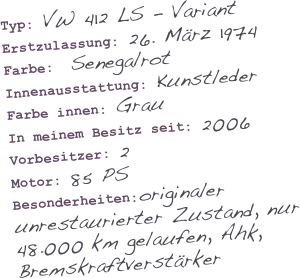 Typ: VW 412 LS - Variant
Erstzulassung: 26. März 1974
Farbe: Senegalrot
Innenausstattung: Kunstleder
Farbe innen: Grau
In meinem Besitz seit: 2006
Vorbesitzer: 2
Motor: 85 PS
Besonderheiten: originaler
unrestaurierter Zustand, nur
48.000 km gelaufen, Ahk,
Bremskraftverstärker